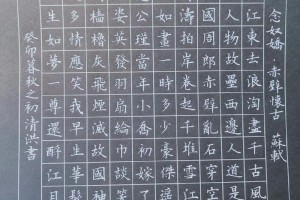 念奴嬌·赤壁懷古 蘇軾
江東去浪淘盡千古風
人物故壘西邊人道是
國周郎赤壁亂石穿空
濤拍岸卷起千堆雪江
如畫一時多少豪傑遙
公瑾當年小喬初嫁了
姿英發羽扇綸巾談笑
檣櫓灰飛煙滅故國
多情應笑我早生華
生如夢一尊還酹江月
癸卯暮秋之初清洪書